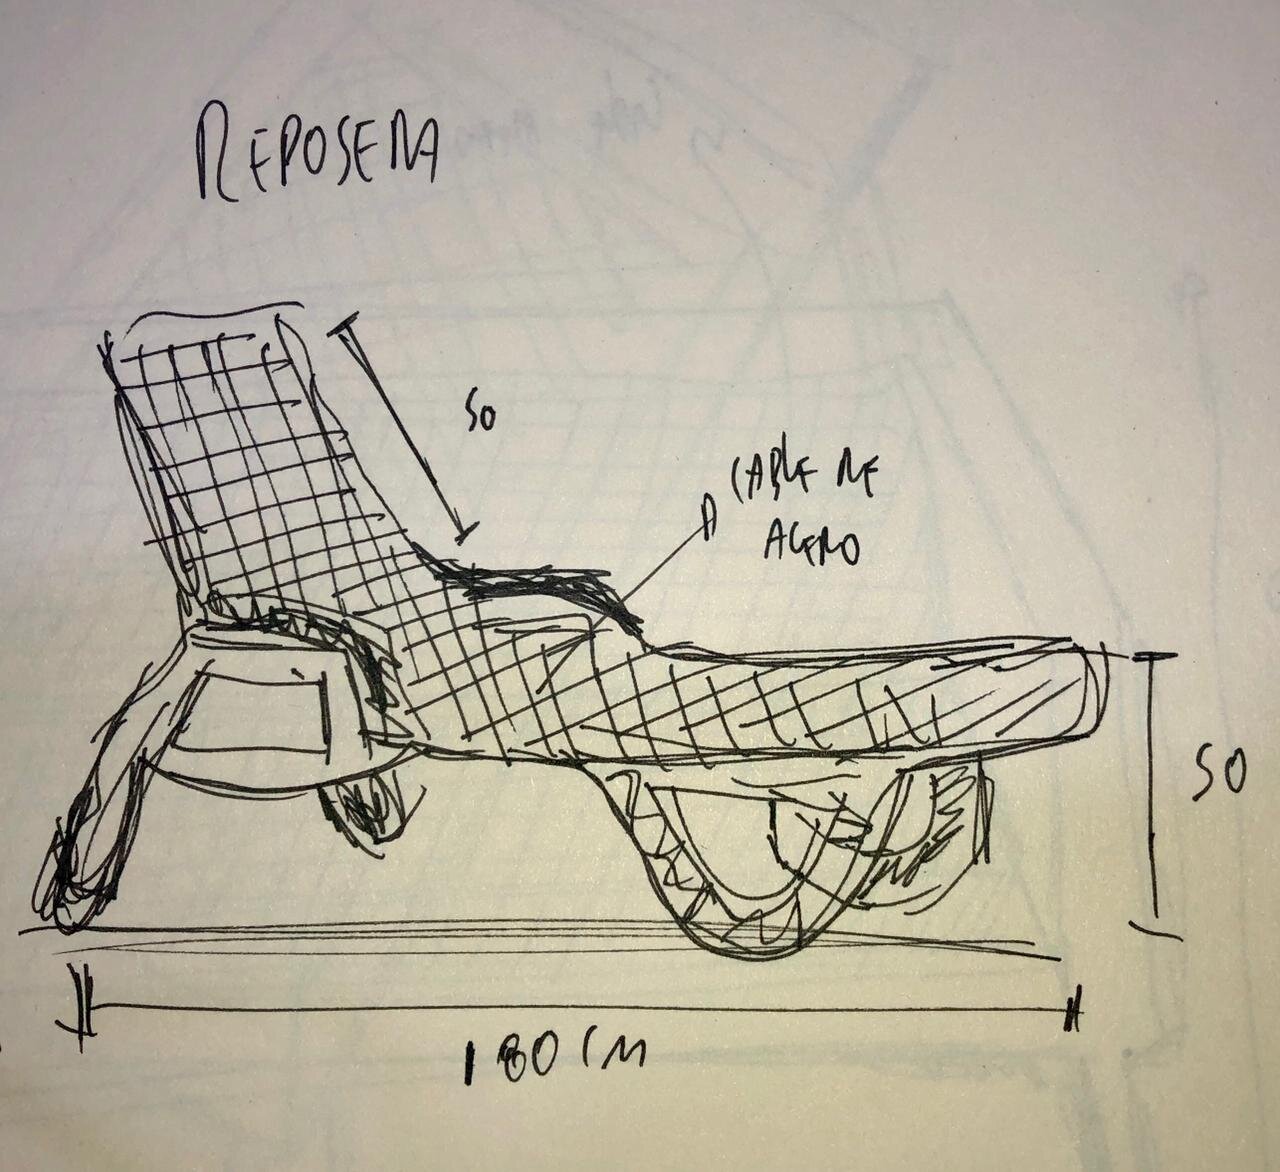 REPOSERA
50
CABLE DE
ACERO
50
180 CM